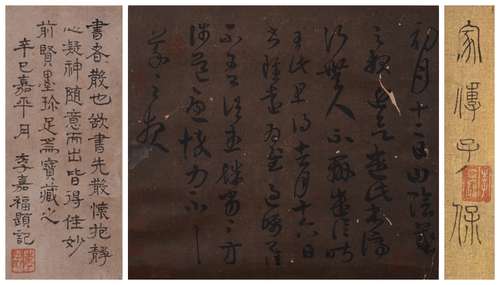 家傳子保
初月十二日山陰羲
之報近欲遣此書停
行無人不辦遣信昨
至此且得去月十六日
書雖遠為慰過囑卿
不吾諸患殊劣方
涉道憂悴力不
羲之報
書者散也故書先散懷抱靜
心凝神隨意而出皆得佳妙
前賢墨珍足為寶藏之
辛巳嘉平月 李嘉福題記